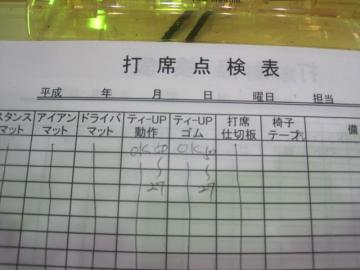 打席点検表
平成 年 月 日 曜日 担当
スタンスマット アイアンマット ドライバマット ティーUP動作 ティーUPゴム 打席仕切板 椅子テーブル 備
OK 50 OK 50
27 27